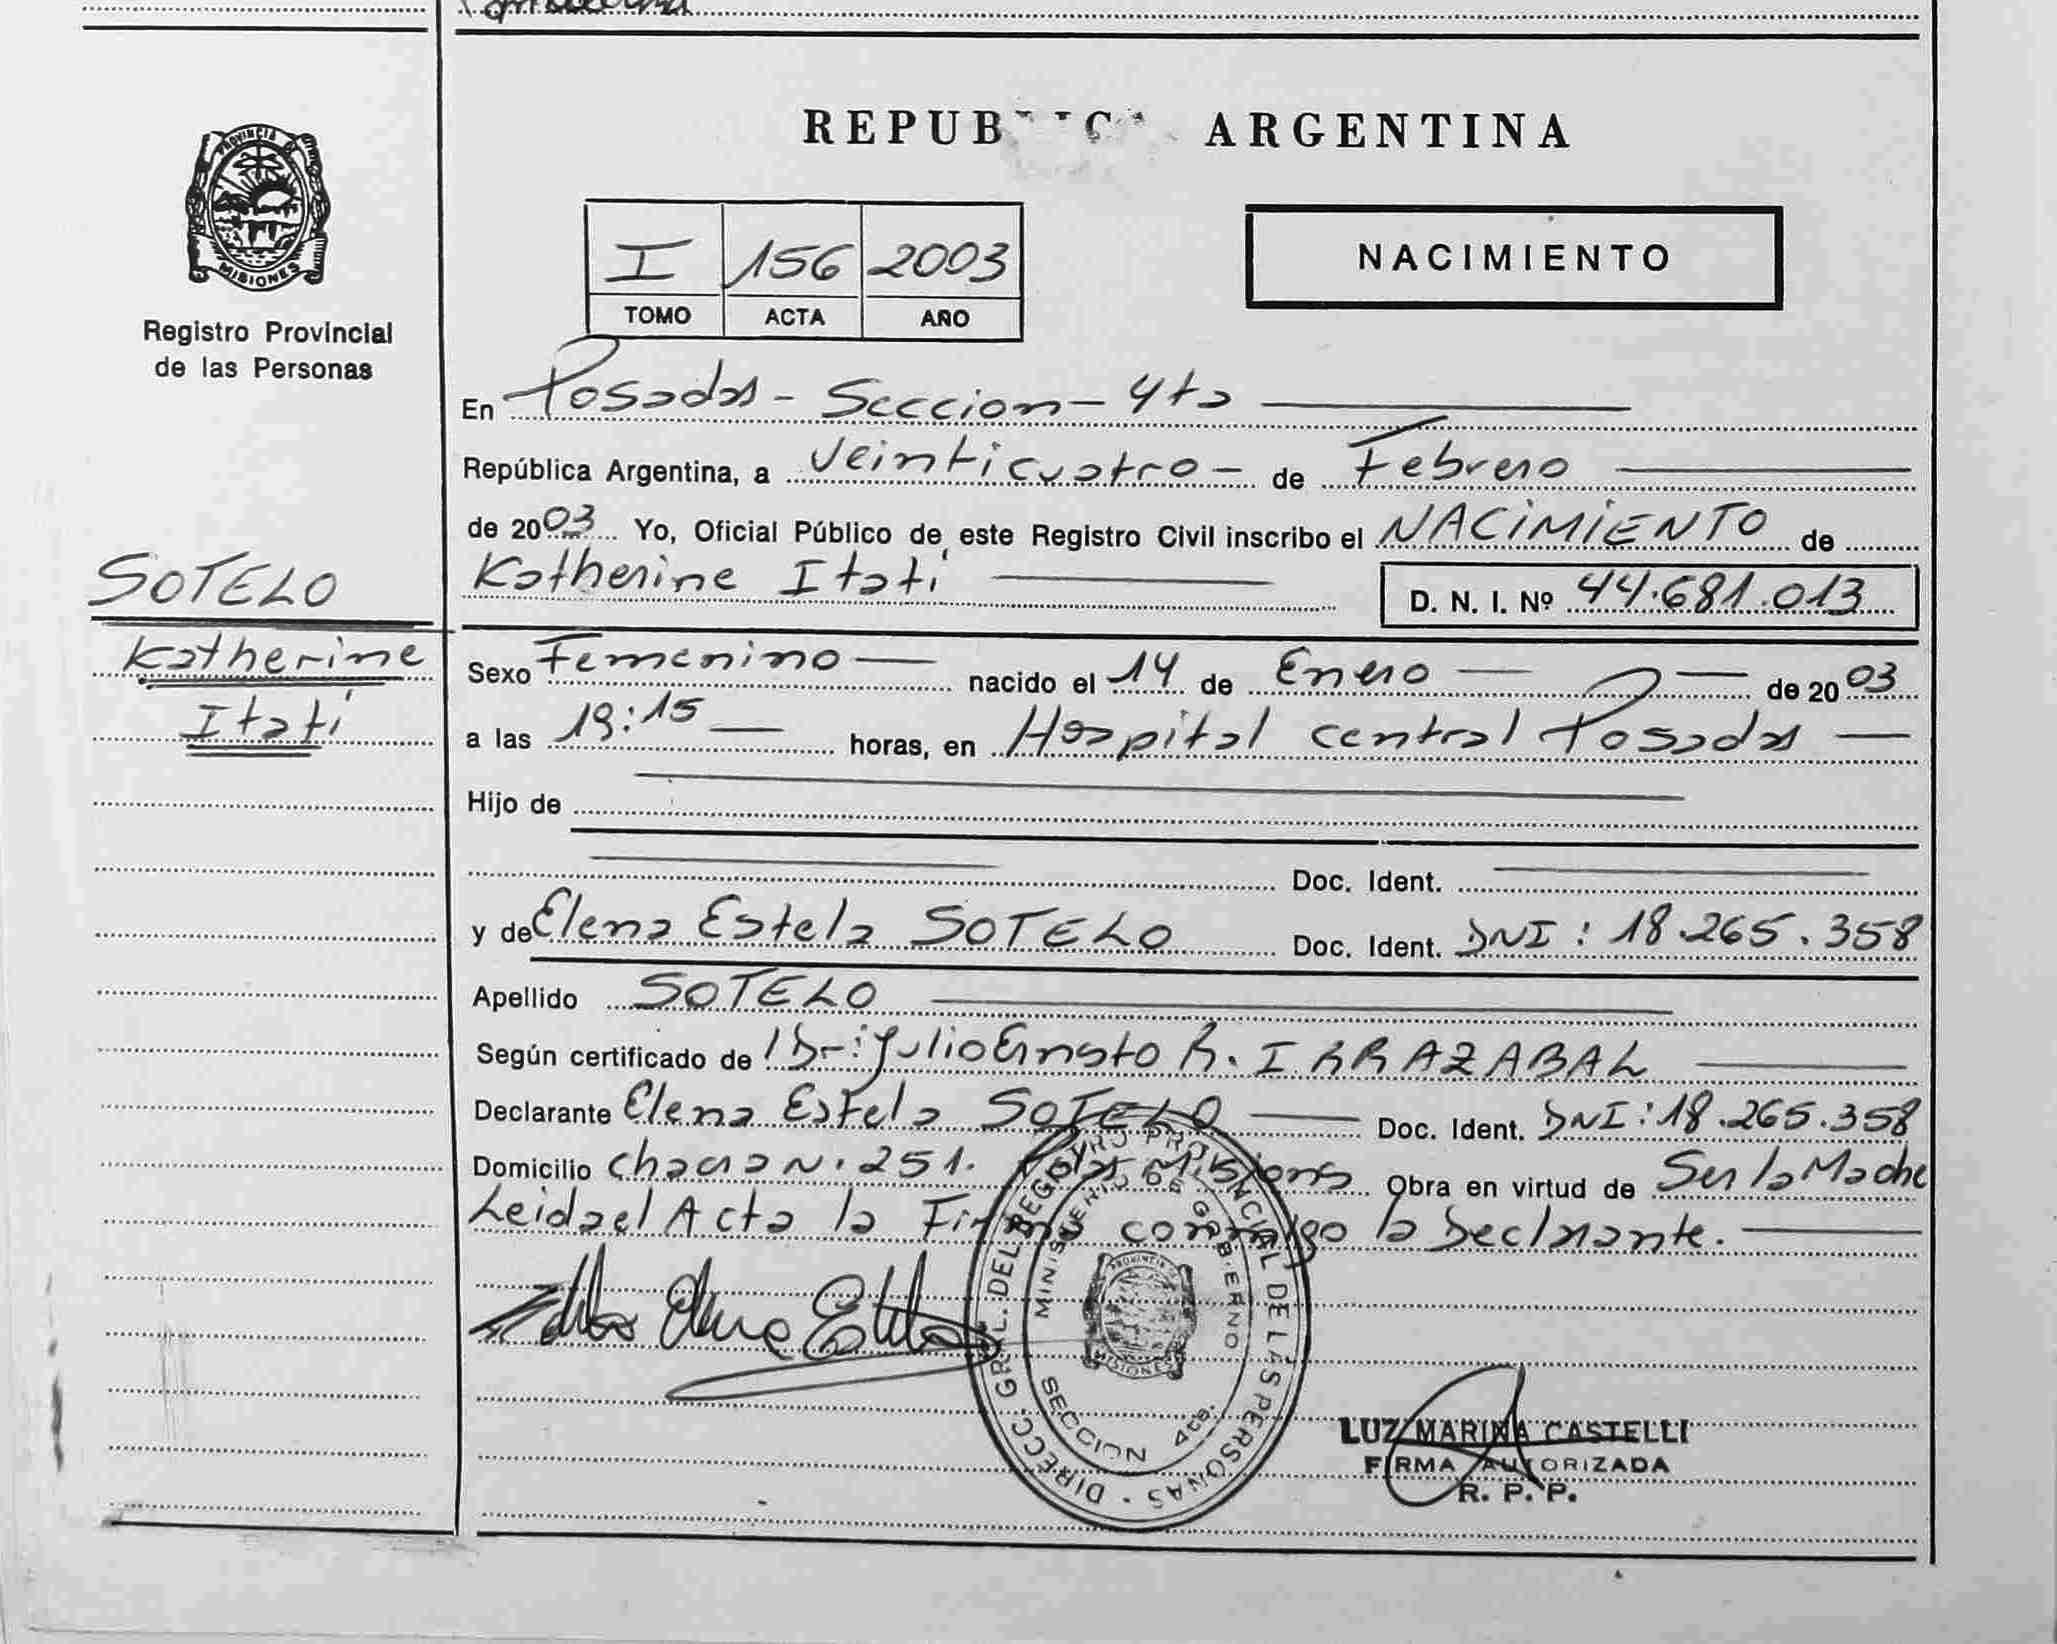 REPUB C ARGENTINA
PROVINCIA DE
MISIONES
Registro Provincial
de las Personas
I 156 2003
TOMO ACTA AÑO
NACIMIENTO
En Posadas - Seccion - 4ta
República Argentina, a veinticuatro - de Febrero
de 2003 Yo, Oficial Público de este Registro Civil inscribo el NACIMIENTO de
Katherine Itatí D. N. I. Nº 44.681.013
SOTELO
Katherine
Itatí
Sexo Femenino nacido el 14 de Enero de 2003
a las 19:15 horas, en Hospital Central Posadas
Hijo de
Doc. Ident.
y de Elena Estela SOTELO Doc. Ident. DNI: 18.265.358
Apellido SOTELO
Según certificado de Dr: Julio Ernesto R. IRRAZABAL
Declarante Elena Estela SOTELO Doc. Ident. DNI: 18.265.358
Domicilio Chacra N. 251. Misiones Obra en virtud de Ser la Madre
Leida el Acta la Firma conmigo la Declarante.
DIRECC. GRAL. DEL REGISTRO PROVINCIAL DE LAS PERSONAS
MINISTERIO DE GOBIERNO
PROVINCIA
MISIONES
SECCION 4ta.
LUZ MARINA CASTELLI
FIRMA AUTORIZADA
R. P. P.